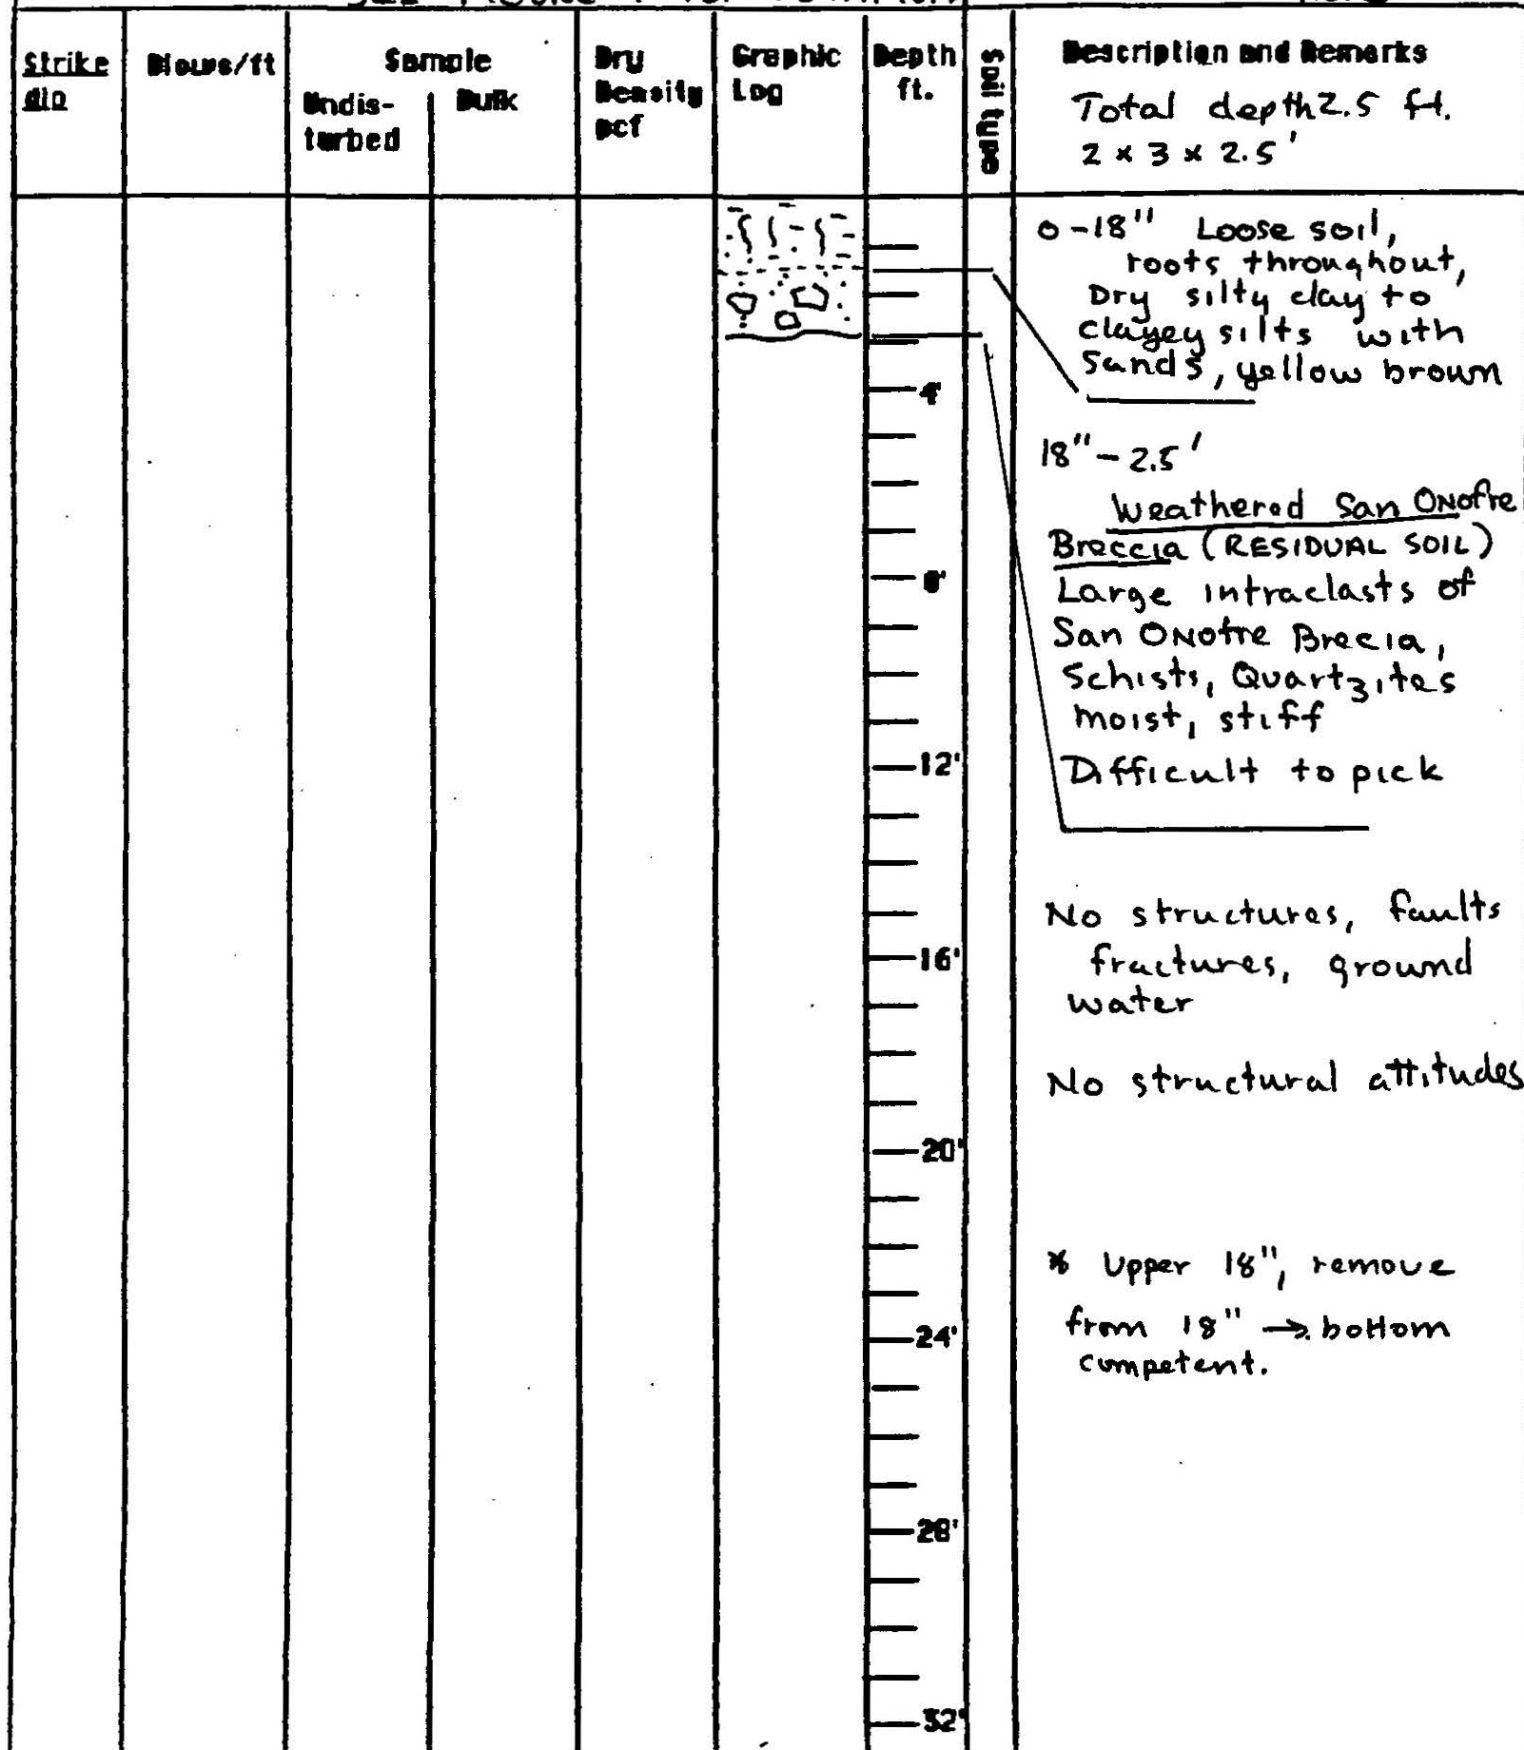 Strike
dip
Blows/ft
Sample
Undis-
turbed
Bulk
Dry
Density
pcf
Graphic
Log
Depth
ft.
Soil type
Description and Remarks
Total depth 2.5 ft.
2 x 3 x 2.5'
0-18" Loose soil,
roots throughout,
Dry silty clay to
clayey silts with
Sands, yellow brown
4'
18"-2.5'
Weathered San Onofre
Breccia (RESIDUAL SOIL)
8'
Large intraclasts of
San Onofre Brecia,
Schists, Quartzites
moist, stiff
12'
Difficult to pick
No structures, faults
16'
fractures, ground
water
No structural attitudes
20'
* Upper 18", remove
24'
from 18" → bottom
competent.
28'
32'